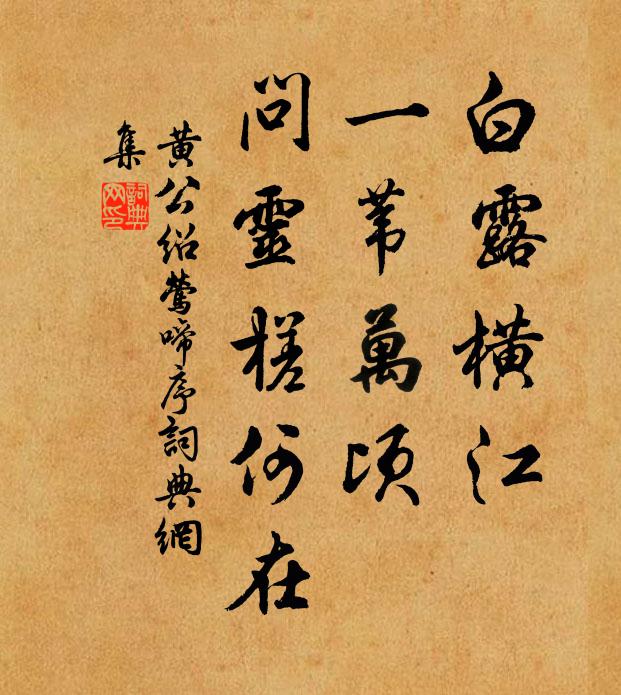 白露橫江
一葦萬頃
問靈槎何在
黃公紹鶯啼序詞典網
集
詞典
网印